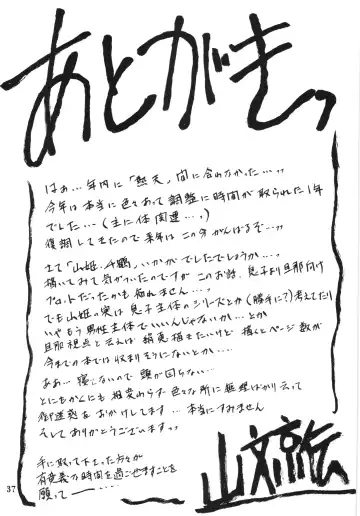 あとがきっ
はぁ…年内に「熱天」間に合わなかった…〃
今年は本当に色々あって調整に時間が取られた1年
でした…(主に体関連…。)
復調してきたので来年はこの分がんばるぞ…〃
さて「山姫、千鶴」いかがでしたでしょうか…。
描いてみて気がついたのですが このお話、息子より旦那向け
プロットだったかも知れません…。
でも山姫の実は息子主体のシリーズとか(勝手に?)考えてたり
いやもう男性主体でいいんじゃないか…とか
旦那視点と云えば絹恵も描きたいけど 描くとページ数が
今までの本では収まりそうにないとか…。
ああ…寝てないので頭が回らない…
とにもかくにも相変わらず色々な所に無理ばかり云って
御迷惑をおかけしてます…本当にすみません
そしてありがとうございますっ〃
手に取って下さった方々が
有意義な時間を過ごせますことを
願って――…
山文京伝
37